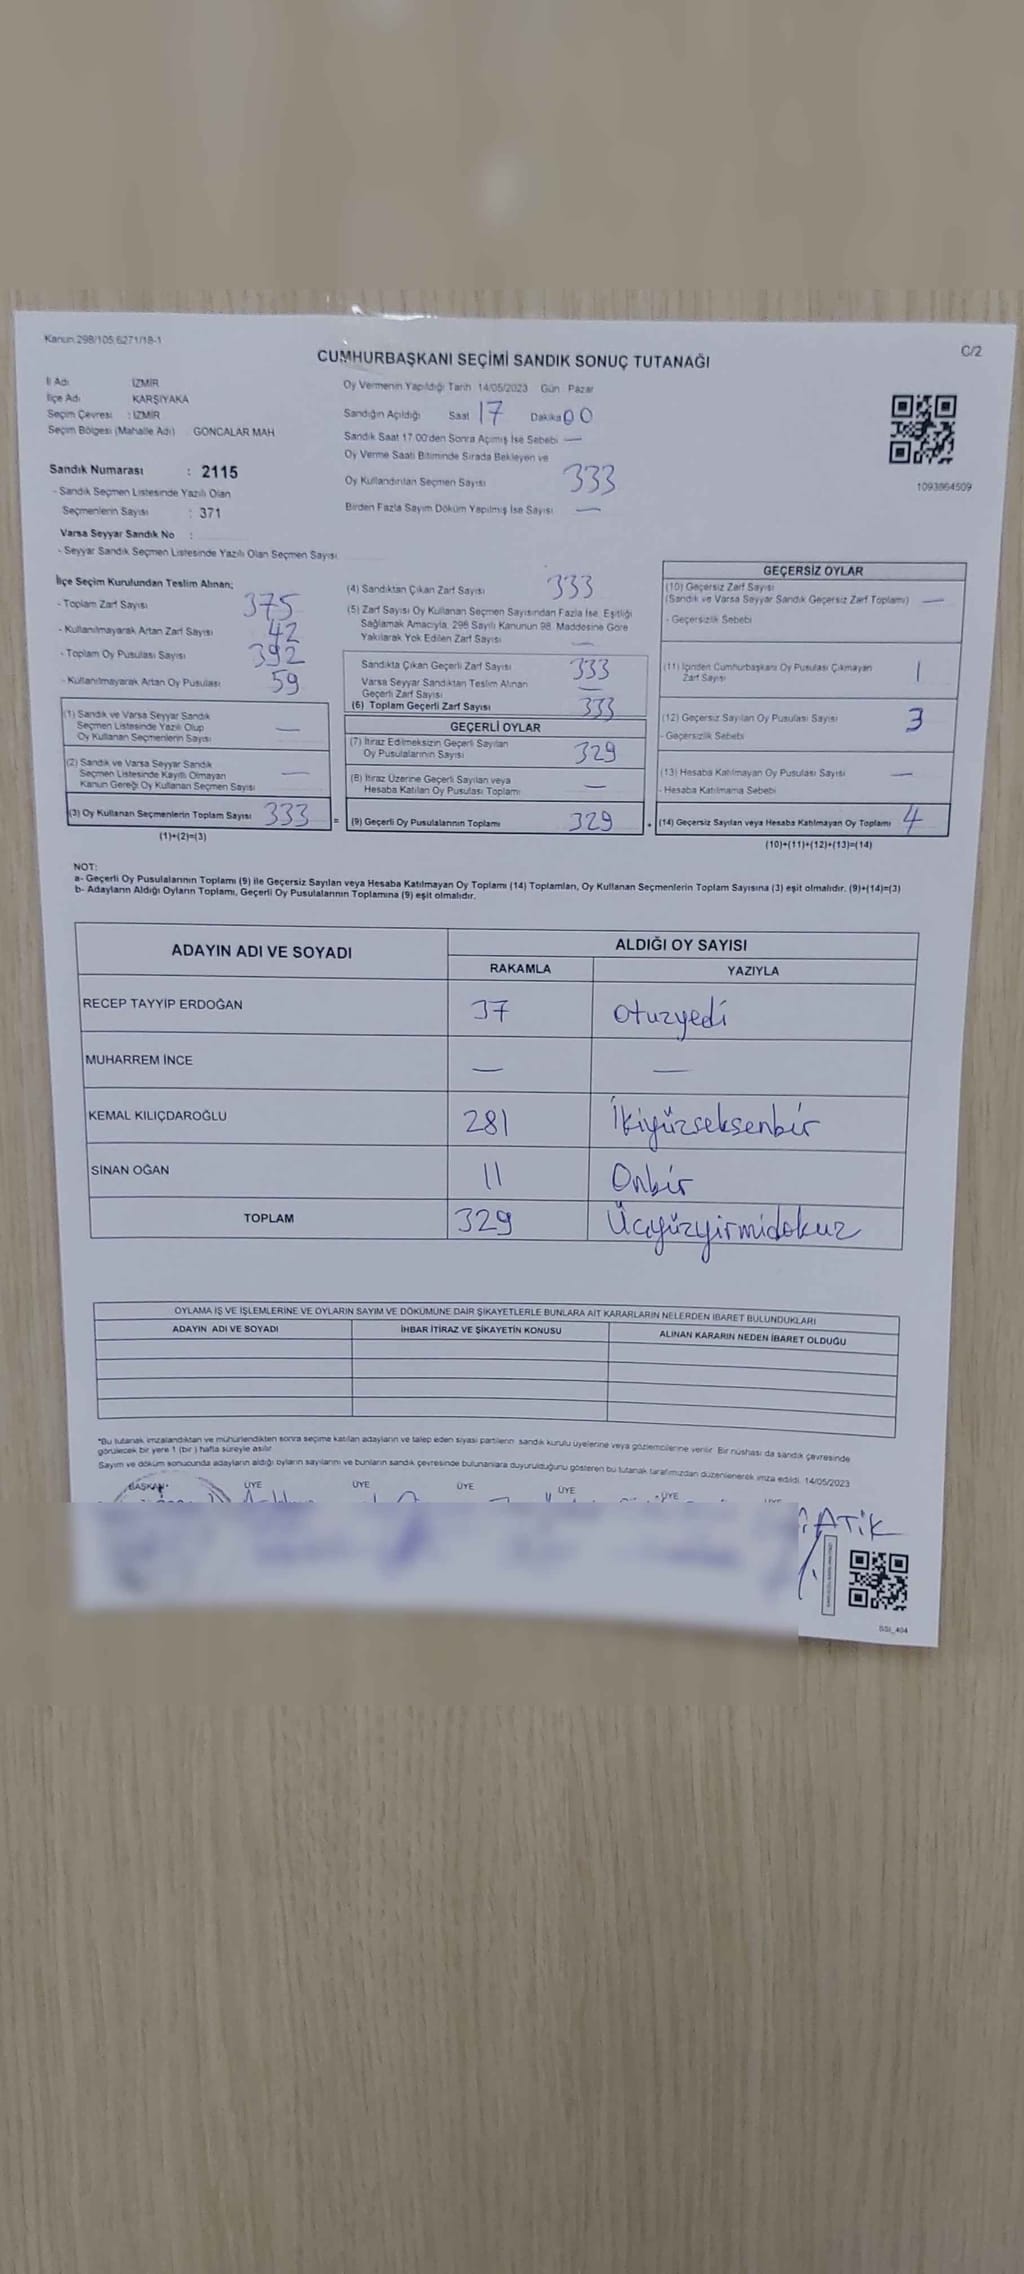 Kanun 298/105, 6271/18-1
C/2
CUMHURBAŞKANI SEÇİMİ SANDIK SONUÇ TUTANAĞI
İl Adı İZMİR
İlçe Adı KARŞIYAKA
Seçim Çevresi : İZMİR
Seçim Bölgesi (Mahalle Adı) GONCALAR MAH
Sandık Numarası : 2115
- Sandık Seçmen Listesinde Yazılı Olan
Seçmenlerin Sayısı : 371
Varsa Seyyar Sandık No :
- Seyyar Sandık Seçmen Listesinde Yazılı Olan Seçmen Sayısı
Oy Vermenin Yapıldığı Tarih 14/05/2023 Gün Pazar
Sandığın Açıldığı Saat 17 Dakika 00
Sandık Saat 17.00'den Sonra Açılmış İse Sebebi —
Oy Verme Saati Bitiminde Sırada Bekleyen ve
Oy Kullandırılan Seçmen Sayısı 333
Birden Fazla Sayım Döküm Yapılmış İse Sayısı —
1093864509
İlçe Seçim Kurulundan Teslim Alınan;
- Toplam Zarf Sayısı 375
- Kullanılmayarak Artan Zarf Sayısı 42
- Toplam Oy Pusulası Sayısı 392
- Kullanılmayarak Artan Oy Pusulası 59
(1) Sandık ve Varsa Seyyar Sandık
Seçmen Listesinde Yazılı Olup
Oy Kullanan Seçmenlerin Sayısı —
(2) Sandık ve Varsa Seyyar Sandık
Seçmen Listesinde Kayıtlı Olmayan
Kanun Gereği Oy Kullanan Seçmen Sayısı —
(3) Oy Kullanan Seçmenlerin Toplam Sayısı 333 =
(1)+(2)=(3)
(4) Sandıktan Çıkan Zarf Sayısı 333
(5) Zarf Sayısı Oy Kullanan Seçmen Sayısından Fazla İse, Eşitliği
Sağlamak Amacıyla, 298 Sayılı Kanunun 98. Maddesine Göre
Yakılarak Yok Edilen Zarf Sayısı —
Sandıkta Çıkan Geçerli Zarf Sayısı 333
Varsa Seyyar Sandıktan Teslim Alınan
Geçerli Zarf Sayısı —
(6) Toplam Geçerli Zarf Sayısı 333
GEÇERLİ OYLAR
(7) İtiraz Edilmeksizin Geçerli Sayılan
Oy Pusulalarının Sayısı 329
(8) İtiraz Üzerine Geçerli Sayılan veya
Hesaba Katılan Oy Pusulası Toplamı —
(9) Geçerli Oy Pusulalarının Toplamı 329 +
GEÇERSİZ OYLAR
(10) Geçersiz Zarf Sayısı
(Sandık ve Varsa Seyyar Sandık Geçersiz Zarf Toplamı) —
- Geçersizlik Sebebi
(11) İçinden Cumhurbaşkanı Oy Pusulası Çıkmayan
Zarf Sayısı 1
(12) Geçersiz Sayılan Oy Pusulası Sayısı 3
- Geçersizlik Sebebi
(13) Hesaba Katılmayan Oy Pusulası Sayısı —
- Hesaba Katılmama Sebebi
(14) Geçersiz Sayılan veya Hesaba Katılmayan Oy Toplamı 4
(10)+(11)+(12)+(13)=(14)
NOT:
a- Geçerli Oy Pusulalarının Toplamı (9) ile Geçersiz Sayılan veya Hesaba Katılmayan Oy Toplamı (14) Toplamları, Oy Kullanan Seçmenlerin Toplam Sayısına (3) eşit olmalıdır. (9)+(14)=(3)
b- Adayların Aldığı Oyların Toplamı, Geçerli Oy Pusulalarının Toplamına (9) eşit olmalıdır.
ADAYIN ADI VE SOYADI ALDIĞI OY SAYISI
RAKAMLA YAZIYLA
RECEP TAYYİP ERDOĞAN 37 otuzyedi
MUHARREM İNCE — —
KEMAL KILIÇDAROĞLU 281 İkiyüzseksenbir
SİNAN OĞAN 11 Onbir
TOPLAM 329 Üçyüzyirmidokuz
OYLAMA İŞ VE İŞLEMLERİNE VE OYLARIN SAYIM VE DÖKÜMÜNE DAİR ŞİKAYETLERLE BUNLARA AİT KARARLARIN NELERDEN İBARET BULUNDUKLARI
ADAYIN ADI VE SOYADI İHBAR İTİRAZ VE ŞİKAYETİN KONUSU ALINAN KARARIN NEDEN İBARET OLDUĞU
*Bu tutanak imzalandıktan ve mühürlendikten sonra seçime katılan adayların ve talep eden siyasi partilerin sandık kurulu üyelerine veya gözlemcilerine verilir. Bir nüshası da sandık çevresinde
görülecek bir yere 1 (bir) hafta süreyle asılır.
Sayım ve döküm sonucunda adayların aldığı oyların sayılarını ve bunların sandık çevresinde bulunanlara duyurulduğunu gösteren bu tutanak tarafımızdan düzenlenerek imza edildi. 14/05/2023
BAŞKAN ÜYE ÜYE ÜYE ÜYE ÜYE
ATİK
SSI_404